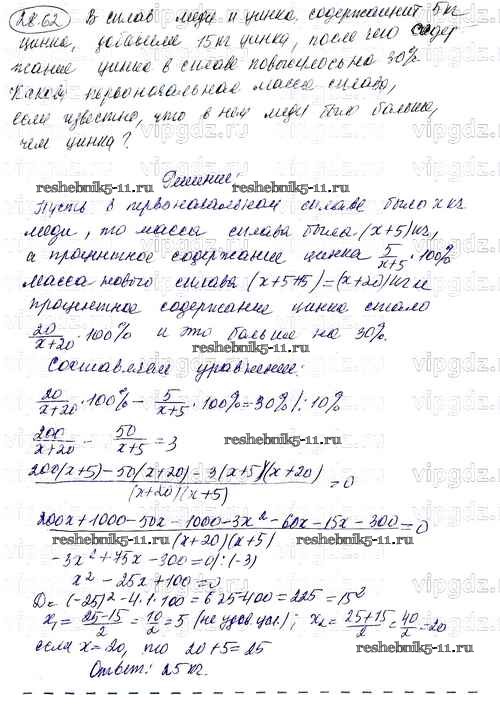 28.62 В сплав меди и цинка, содержащий 5 кг
цинка, добавили 15 кг цинка, после чего содер
жание цинка в сплаве повысилось на 30%
Какой первоначальная масса сплава,
если известно, что в нем меди было больше,
чем цинка?
Решение:
reshebnik5-11.ru reshebnik5-11.ru
Пусть в первоначальном сплаве было x кг
меди, то масса сплава была (x+5) кг,
а процентное содержание цинка 5/(x+5) · 100%
reshebnik5-11.ru
Масса нового сплава (x+5+15) = (x+20) кг и
процентное содержание цинка стало
20/(x+20) · 100% и это больше на 30%.
reshebnik5-11.ru
Составляем уравнение:
20/(x+20) · 100% - 5/(x+5) · 100% = 30% |: 10%
200/(x+20) - 50/(x+5) = 3
reshebnik5-11.ru
(200(x+5) - 50(x+20) - 3(x+5)(x+20))/((x+20)(x+5)) = 0
(200x+1000-50x-1000-3x²-60x-15x-300)/((x+20)(x+5)) = 0
-3x²+75x-300=0 |:(-3)
x²-25x+100=0
reshebnik5-11.ru
D = (-25)²-4·1·100 = 625-400 = 225 = 15²
x₁ = (25-15)/2 = 10/2 = 5 (не удов. усл.); x₂ = (25+15)/2 = 40/2 = 20
если x=20, то 20+5=25
reshebnik5-11.ru
Ответ: 25 кг.